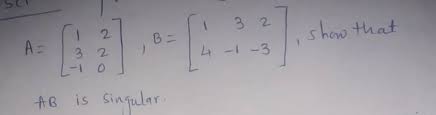 A = [1 2; 3 2; -1 0], B = [1 3 2; 4 -1 -3], show that
AB is singular.